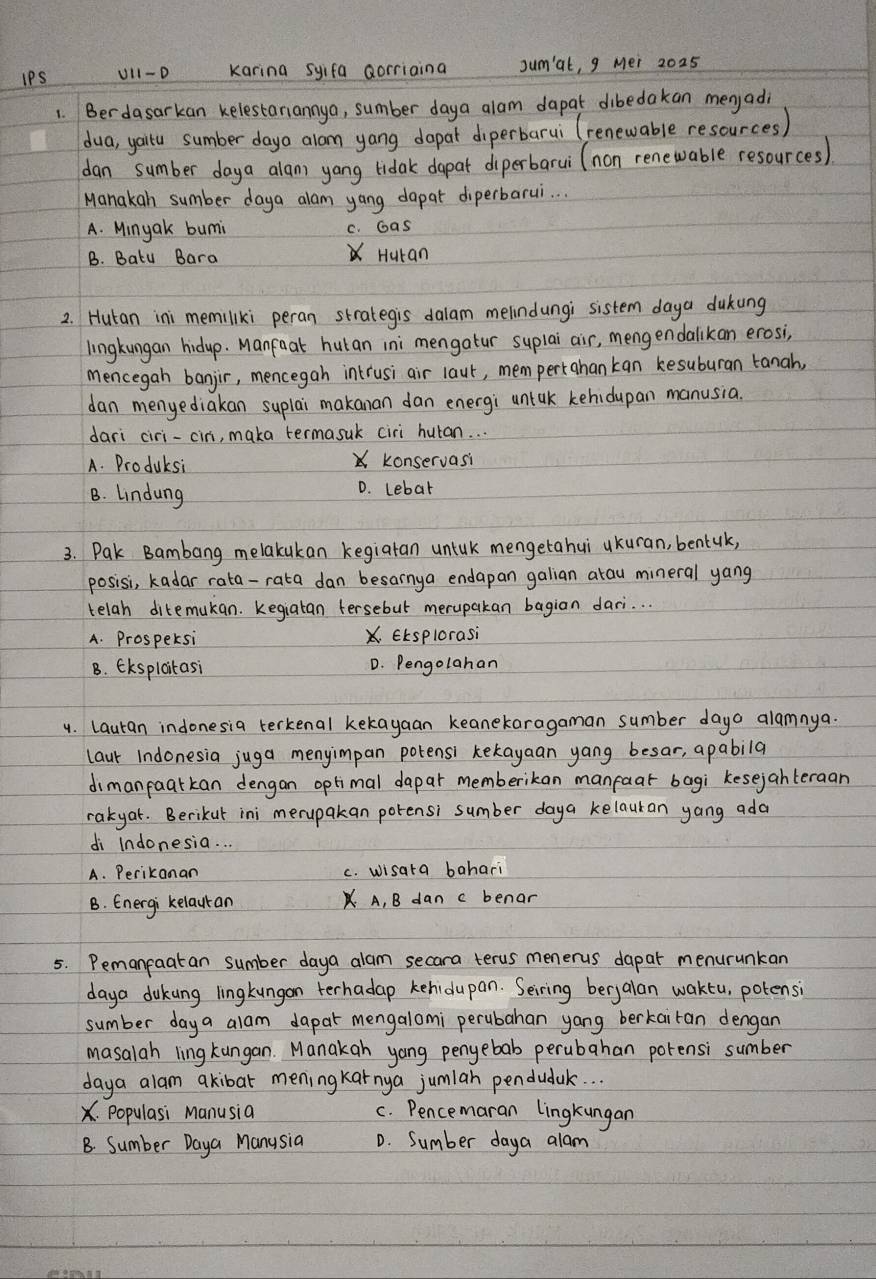 IPS VII-D Karina Syifa Qorriaina Jum'at, 9 Mei 2025
1. Berdasarkan kelestariannya, sumber daya alam dapat dibedakan menjadi
dua, yaitu sumber daya alam yang dapat diperbarui (renewable resources)
dan sumber daya alam yang tidak dapat diperbarui (non renewable resources).
Manakah sumber daya alam yang dapat diperbarui...
A. Minyak bumi C. Gas
B. Batu Bara X Hutan
2. Hutan ini memiliki peran strategis dalam melindungi sistem daya dukung
lingkungan hidup. Manfaat hutan ini mengatur suplai air, mengendalikan erosi,
mencegah banjir, mencegah intrusi air laut, mempertahankan kesuburan tanah,
dan menyediakan suplai makanan dan energi untuk kehidupan manusia.
dari ciri-ciri, maka termasuk ciri hutan...
A. Produksi X Konservasi
B. Lindung D. Lebat
3. Pak Bambang melakukan kegiatan untuk mengetahui ukuran, bentuk,
posisi, kadar rata-rata dan besarnya endapan galian atau mineral yang
telah ditemukan. Kegiatan tersebut merupakan bagian dari...
A. Prospeksi X. Eksplorasi
B. Eksploitasi D. Pengolahan
4. Lautan indonesia terkenal kekayaan keanekaragaman sumber daya alamnya.
Laut Indonesia juga menyimpan potensi kekayaan yang besar, apabila
dimanfaatkan dengan optimal dapat memberikan manfaat bagi kesejahteraan
rakyat. Berikut ini merupakan potensi sumber daya kelautan yang ada
di Indonesia...
A. Perikanan C. wisata bahari
B. Energi kelautan X A, B dan C benar
5. Pemanfaatan sumber daya alam secara terus menerus dapat menurunkan
daya dukung lingkungan terhadap kehidupan. Seiring berjalan waktu, potensi
sumber daya alam dapat mengalami perubahan yang berkaitan dengan
masalah lingkungan. Manakah yang penyebab perubahan potensi sumber
daya alam akibat meningkatnya jumlah penduduk...
X. Populasi Manusia C. Pencemaran Lingkungan
B. Sumber Daya Manusia D. Sumber daya alam
SIDU